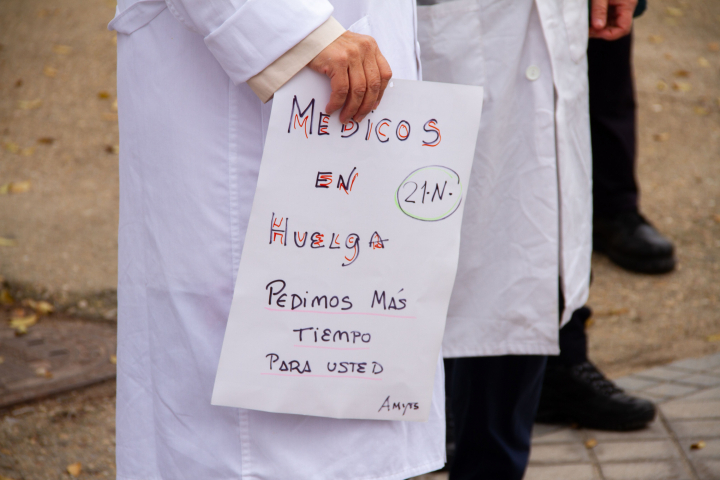 MÉDICOS
EN
21·N·
HUELGA
PEDIMOS MÁS
TIEMPO
PARA USTED
AMYTS